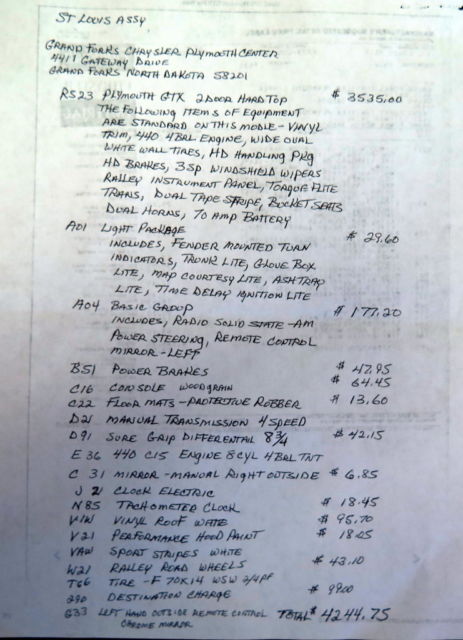 ST LOUIS ASSY
GRAND FORKS CHRYSLER PLYMOUTH CENTER
4411 GATEWAY DRIVE
GRAND FORKS NORTH DAKOTA 58201
RS23 PLYMOUTH GTX 2 DOOR HARD TOP $ 3535.00
THE FOLLOWING ITEMS OF EQUIPMENT
ARE STANDARD ON THIS MODLE - VINYL
TRIM, 440 4BRL ENGINE, WIDE OVAL
WHITE WALL TIRES, HD HANDLING PKG
HD BRAKES, 3SP WINDSHIELD WIPERS
RALLEY INSTRUMENT PANEL, TORQUE FLITE
TRANS, DUAL TAPE STRIPE, BUCKET SEATS
DUAL HORNS, 70 AMP BATTERY
A01 LIGHT PACKAGE $ 29.60
INCLUDES, FENDER MOUNTED TURN
INDICATORS, TRUNK LITE, GLOVE BOX
LITE, MAP COURTESY LITE, ASH TRAY
LITE, TIME DELAY IGNITION LITE
A04 BASIC GROUP $ 177.20
INCLUDES, RADIO SOLID STATE - AM
POWER STEERING, REMOTE CONTROL
MIRROR - LEFT
B51 POWER BRAKES $ 42.95
C16 CONSOLE WOODGRAIN $ 64.45
C22 FLOOR MATS - PROTECTIVE RUBBER $ 13.60
D21 MANUAL TRANSMISSION 4 SPEED
D91 SURE GRIP DIFFERENTIAL 8 3/4 $ 42.15
E 86 440 CIS ENGINE 8 CYL 4 BRL TNT
C 31 MIRROR - MANUAL RIGHT OUTSIDE $ 6.85
J 21 CLOCK ELECTRIC
N85 TACHOMETER CLOCK $ 18.45
V1W VINYL ROOF WHITE $ 95.70
V21 PERFORMANCE HOOD PAINT $ 18.05
VAW SPORT STRIPES WHITE
W21 RALLEY ROAD WHEELS $ 43.10
T86 TIRE - F 70X14 WSW
290 DESTINATION CHARGE $ 99.00
G33 LEFT HAND OUTSIDE REMOTE CONTROL TOTAL $ 4244.75
CHROME MIRROR